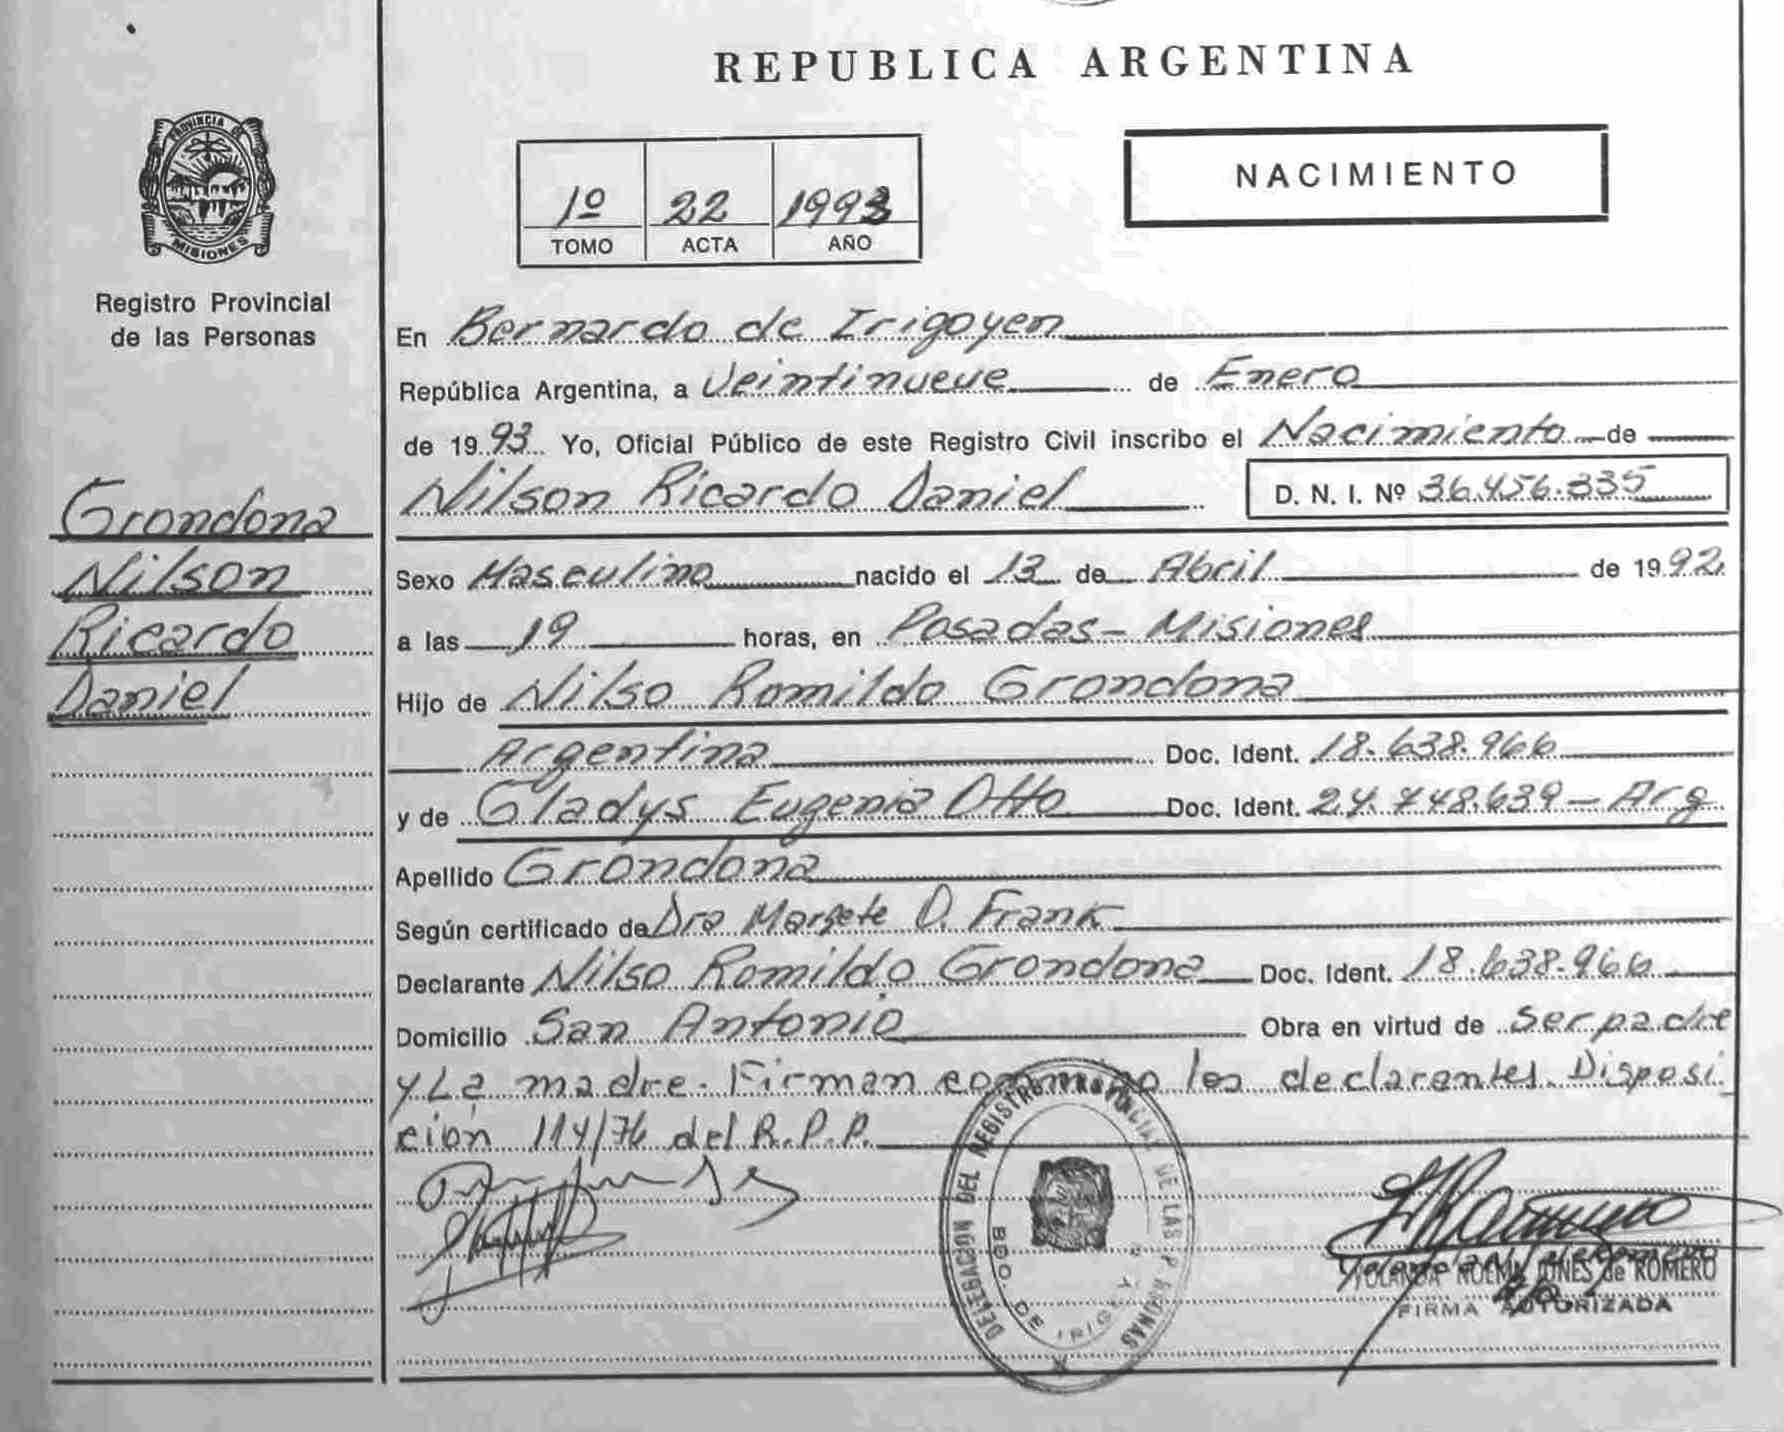 REPUBLICA ARGENTINA
PROVINCIA DE
MISIONES
Registro Provincial
de las Personas
1º 22 1993
TOMO ACTA AÑO
NACIMIENTO
Grondona
Nilson
Ricardo
Daniel
En Bernardo de Irigoyen
República Argentina, a Veintinueve de Enero
de 1993 Yo, Oficial Público de este Registro Civil inscribo el Nacimiento de
Nilson Ricardo Daniel D. N. I. Nº 36.456.335
Sexo Masculino nacido el 13 de Abril de 1992
a las 19 horas, en Posadas - Misiones
Hijo de Nilso Romildo Grondona
Argentina Doc. Ident. 18.638.966
y de Gladys Eugenia Otto Doc. Ident. 24.748.639 - Arg
Apellido Grondona
Según certificado de Dra Margete O. Frank
Declarante Nilso Romildo Grondona Doc. Ident. 18.638.966
Domicilio San Antonio Obra en virtud de ser padre
y La madre. Firman conmigo los declarantes. Disposi
ción 114/76 del R.P.P.
DELEGACION DEL REGISTRO PROVINCIAL DE LAS PERSONAS
BDO. DE IRIGOYEN
YOLANDA NOEMI de ROMERO
FIRMA AUTORIZADA